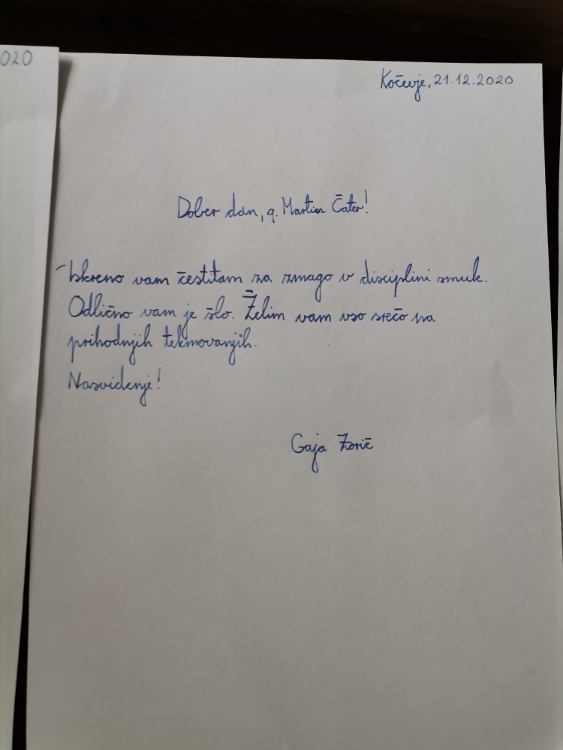 020
Kočevje, 21.12.2020
Dober dan, g. Martin Čater!
Iskreno vam čestitam za zmago v disciplini smuk.
Odlično vam je šlo. Želim vam vso srečo na
prihodnjih tekmovanjih.
Nasvidenje!
Gaja Zorič